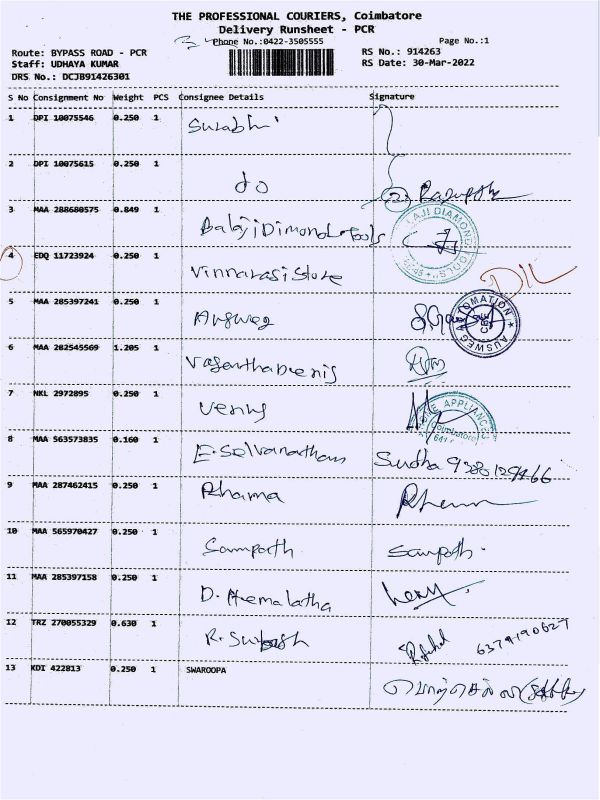 THE PROFESSIONAL COURIERS, Coimbatore
Delivery Runsheet - PCR
Phone No.:0422-3505555
Page No.:1
Route: BYPASS ROAD - PCR
RS No.: 914263
Staff: UDHAYA KUMAR
RS Date: 30-Mar-2022
DRS No.: DCJB91426301
S No Consignment No Weight PCS Consignee Details Signature
1 DPI 10075546 0.250 1 Surabhi
2 DPI 10075615 0.250 1 do
3 MAA 288680575 0.849 1 Balaji Dimond Tools
4 EDQ 11723924 0.250 1 Vinnarasi Store
5 MAA 285397241 0.250 1 Ausweg
AUSWEG AUTOMATION CBE
6 MAA 282545569 1.205 1
7 NKL 2972895 0.250 1 Venus
APPLIANCES
Coimbatore
641
8 MAA 563573835 0.160 1 E. Selvanathan Sudha
9 MAA 287462415 0.250 1 Rhama
10 MAA 565970427 0.250 1 Sampath Sampath.
11 MAA 285397158 0.250 1 D. Hemalatha
12 TRZ 270055329 0.630 1 R. Subash 6379190627
13 KDI 422813 0.250 1 SWAROOPA